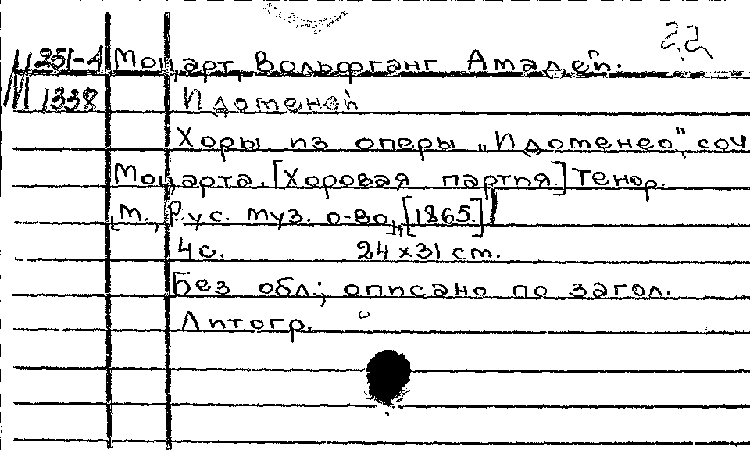 22
М 251-4 Моцарт, Вольфганг Амадей.
1338 Идоменей
Хоры из оперы „Идоменео", соч.
Моцарта. [Хоровая партия.] Тенор.
М., Рус. муз. о-во, [1865]
4с. 24×31 см.
Без обл.; описано по загол.
Литогр.